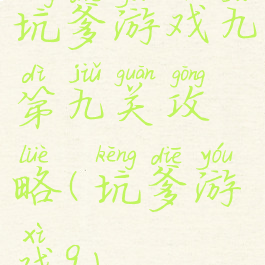 坑爹游戏九
dì jiǔ guān gōng
第九关攻
lüè kēng diē yóu
略(坑爹游
xì
戏9)